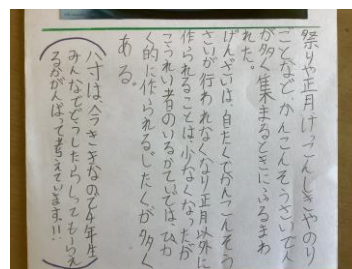 祭りや正月けっこんしきやのり
ことなどかんこんそうさいで人
が多く集まるときにふるまわ
れた。
げんざいは、自たくでかんこんそう
さいが行われなくなり正月以外に
作られることは、少なくなったが
こうれい者のいるかていでは、ひか
く的に作られる。じたくが多く
ある。
八寸は、今ききなので4年生
みんなでどうしたらしってもらえ
るかがんばって考えています!!